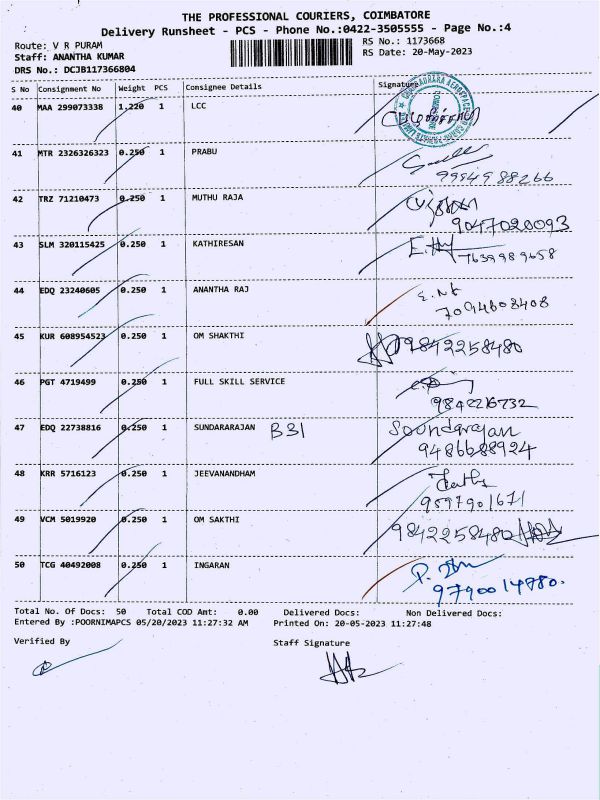 THE PROFESSIONAL COURIERS, COIMBATORE
Delivery Runsheet - PCS - Phone No.:0422-3505555 - Page No.:4
Route: V R PURAM RS No.: 1173668
Staff: ANANTHA KUMAR RS Date: 20-May-2023
DRS No.: DCJB117366804
S No Consignment No Weight PCS Consignee Details Signature
40 MAA 299073338 1.220 1 LCC
41 MTR 2326326323 0.250 1 PRABU
9994988266
42 TRZ 71210473 0.250 1 MUTHU RAJA
9047020093
43 SLM 320115425 0.250 1 KATHIRESAN
7639989658
44 EDQ 23240605 0.250 1 ANANTHA RAJ
7094608408
45 KUR 608954523 0.250 1 OM SHAKTHI 9842258480
46 PGT 4719499 0.250 1 FULL SKILL SERVICE
9842216732
47 EDQ 22738816 0.250 1 SUNDARARAJAN B31 Soundarajan
9486688924
48 KRR 5716123 0.250 1 JEEVANANDHAM
9597901671
49 VCM 5019920 0.250 1 OM SAKTHI 9842258480
50 TCG 40492008 0.250 1 INGARAN
9790014780.
Total No. Of Docs: 50 Total COD Amt: 0.00 Delivered Docs: Non Delivered Docs:
Entered By :POORNIMAPCS 05/20/2023 11:27:32 AM Printed On: 20-05-2023 11:27:48
Verified By Staff Signature